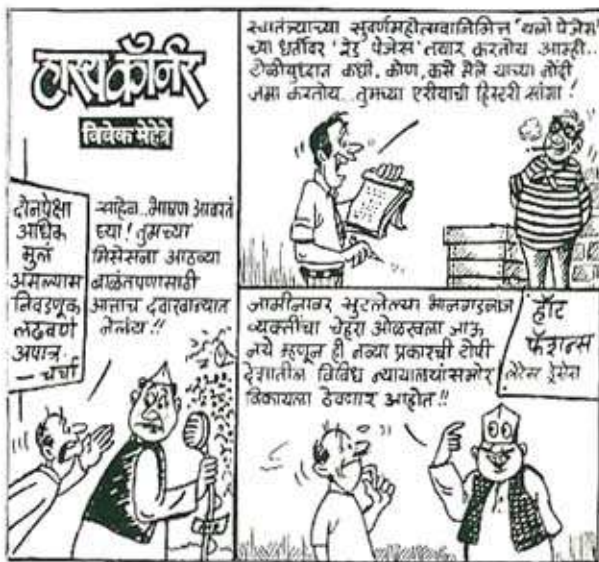 हास्यकॉर्नर
विवेक मेहेत्रे
दोनपेक्षा
अधिक
मुलं
असल्यास
निवडणूक
लढवणे
अपात्र
— चर्चा
साहेब.. भाषण आवरतं
घ्या! तुमच्या
मिसेसना आठव्या
बाळंतपणासाठी
आत्ताच दवाखान्यात
नेलंय!!
स्वातंत्र्याच्या सुवर्णमहोत्सवानिमित्त 'यलो पेजेस'
च्या धर्तीवर 'रेड पेजेस' तयार करतोय आम्ही..
टोळीयुध्दात कधी, कोण, कसे मेले याच्या नोंदी
जमा करतोय.. तुमच्या एरीयाची हिस्टरी सांगा!
जामीनावर सुटलेल्या भानगडबाज
व्यक्तींचा चेहरा ओळखला जाऊ
नये म्हणून ही नव्या प्रकारची टोपी
देशातील विविध न्यायालयांसमोर
विकायला ठेवणार आहोत!!
हॉट
फॅशन्स
लेटेस्ट ड्रेसेस